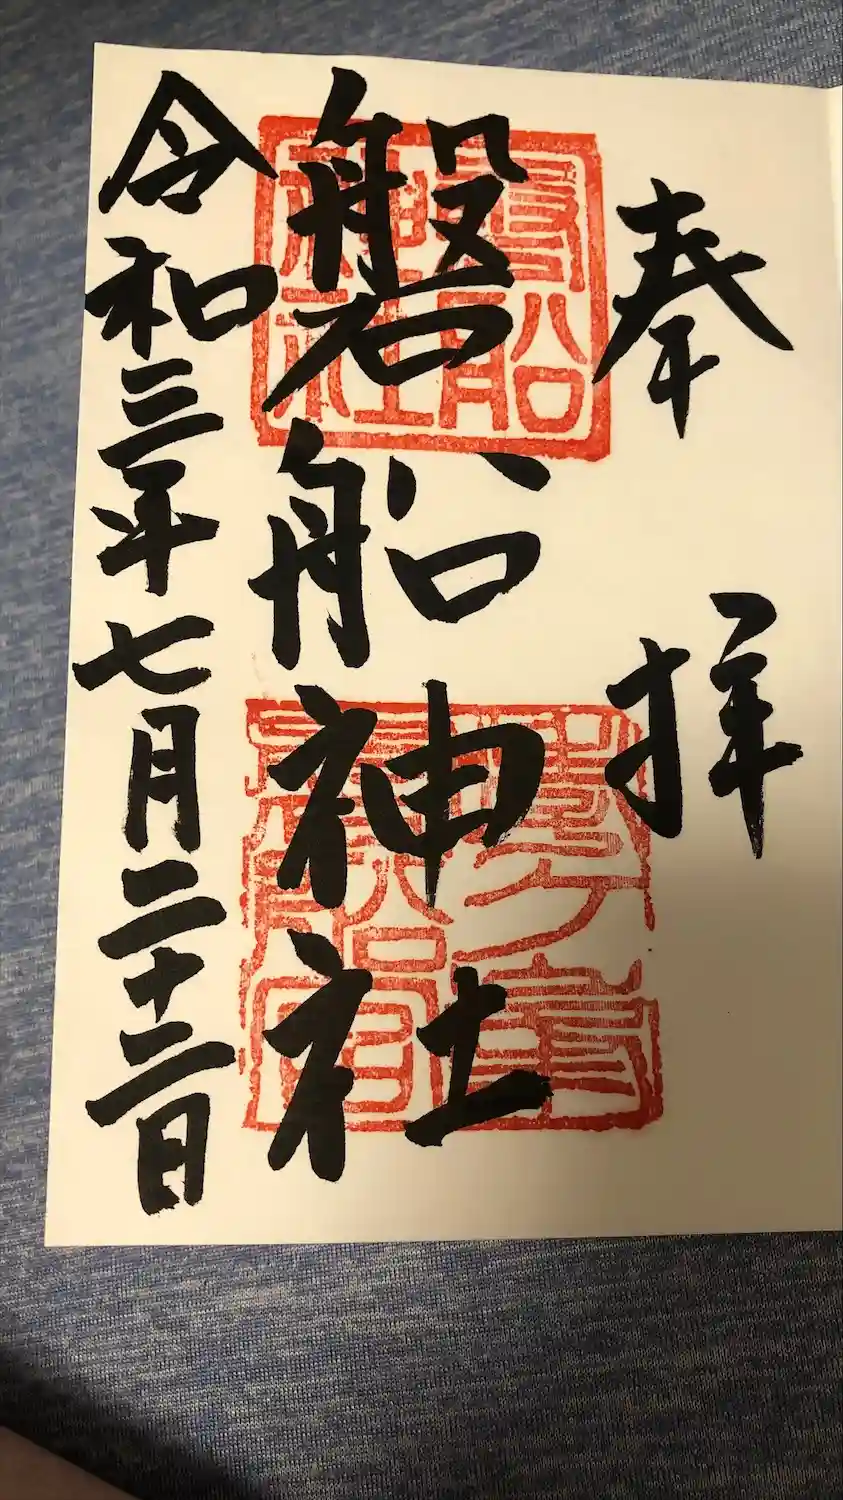 奉拝
磐船神社
令和三年七月二十二日
磐船神社